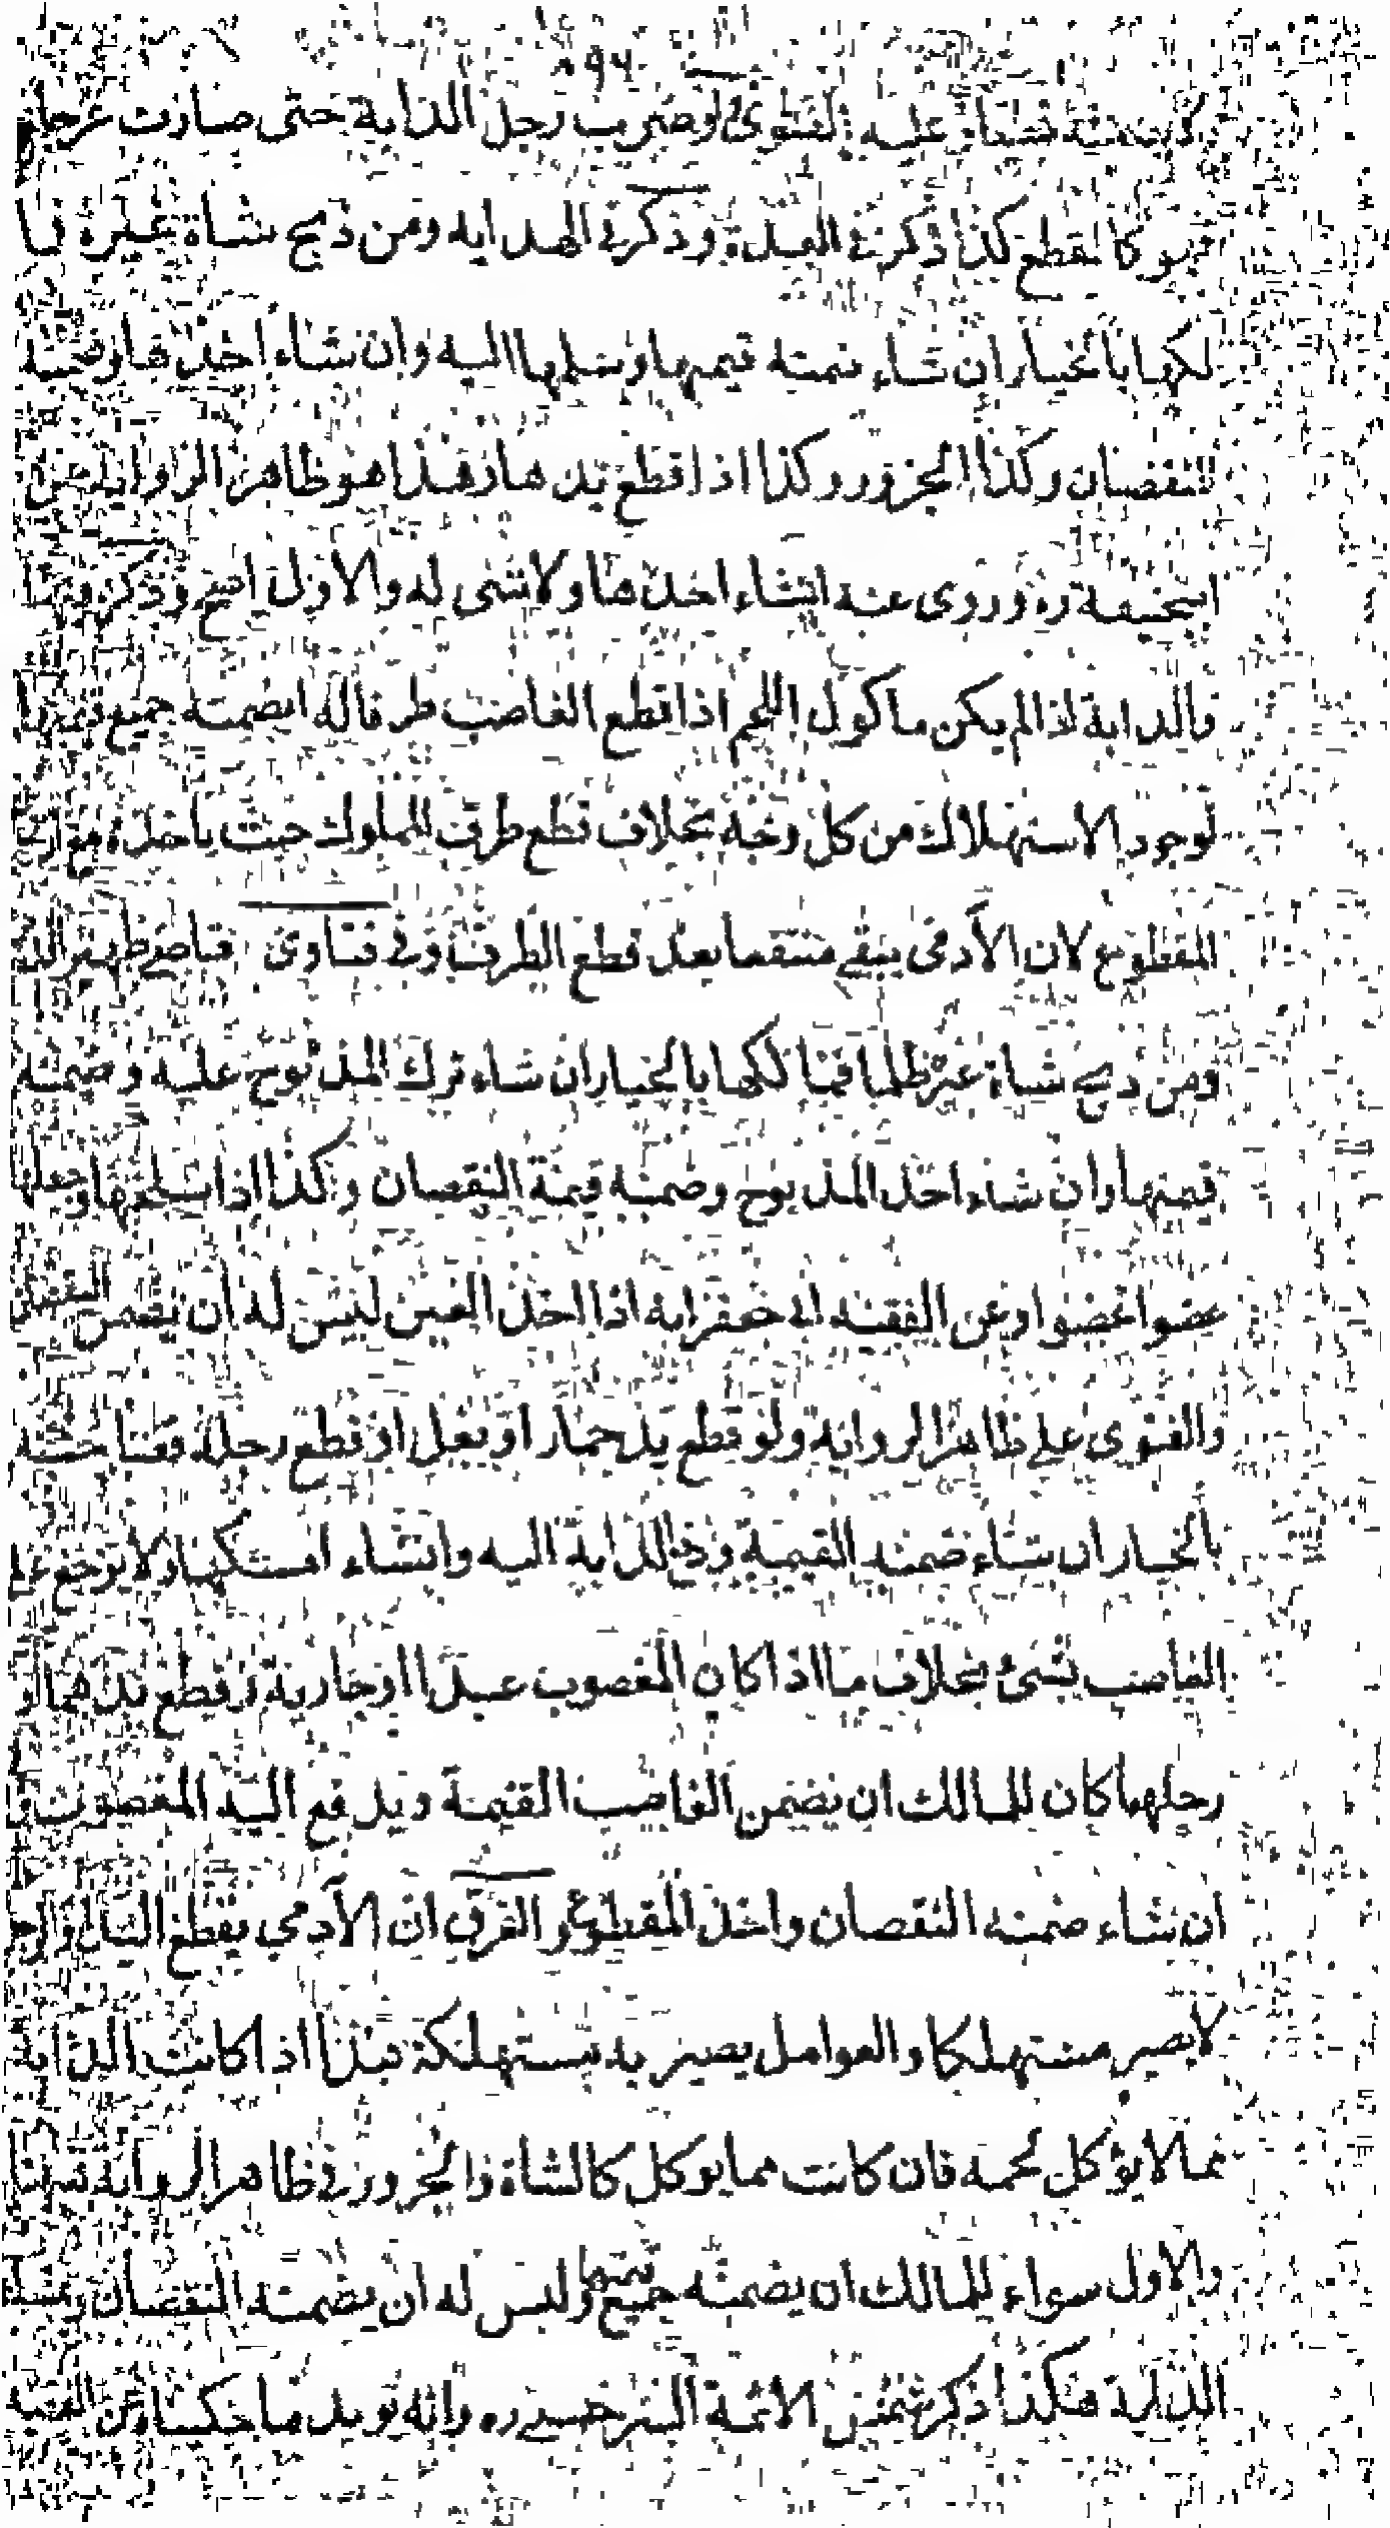 وعليه الفتوى ولو ضرب رجل الدابة حتى صارت عرجاء
فهو كالقطع كذا ذكر في وذكر في الهداية ومن ذبح شاة غيره فما
لكها بالخيار ان شاء ضمنه قيمتها وسلمها اليه وان شاء اخذها وضمنه
النقصان وكذا الجزور وكذا اذا قطع يدها هذا هو ظاهر الرواية عن
ابيحنيفة ره وروى عنه انشاء اخذها ولا شئ له والاول اصح وذكر
والدابة اذا لم يكن ماكول اللحم اذا قطع الغاصب طرفا له ايضمنه جميع قيمتها
لوجود الاستهلاك من كل وجه بخلاف قطع طرف المملوك حيث ياخذه مع
المقطوع لان الآدمى يبقى منتفعا بعد قطع الطرف وفى فتاوى قاضى ظهير الدين
ومن ذبح شاة غيره ظلما فمالكها بالخيار ان شاء ترك المذبوح عليه وضمنه
قيمتها وان شاء اخذ المذبوح وضمنه قيمة النقصان وكذا اذا سلخها وجعلها
عضوا عضوا وعن الفقيه ابى جعفر انه اذا اخذ العين ليس له ان يضمن النقصان
والفتوى على ظاهر الرواية ولو قطع يد حمار او بغل او قطع رجله فصاحبه
بالخيار ان شاء ضمنه القيمة ودفع الدابة اليه وانشاء امسكها ولا يرجع على
الغاصب بشئ بخلاف ما اذا كان المغصوب عبدا او جارية وقطع يدهما او
رجلهما كان للمالك ان يضمن الغاصب القيمة ويدفع اليه المغصوب و
ان شاء ضمنه النقصان واخذ المقطوع والفرق ان الآدمى بقطع اليد او الرجل
لا يصير مستهلكا والعوامل يصير به مستهلكة هذا اذا كانت الدابة
مما لا يؤكل لحمه فان كانت مما يوكل كالشاة والجزور فى ظاهر الرواية هذا
والاول سواء للمالك ان يضمنه جميع قيمتها وليس له ان يضمنه النقصان
الدابة هكذا ذكر شمس الائمة السرخسى ره وانه يؤيد ما حكينا عن الفقيه